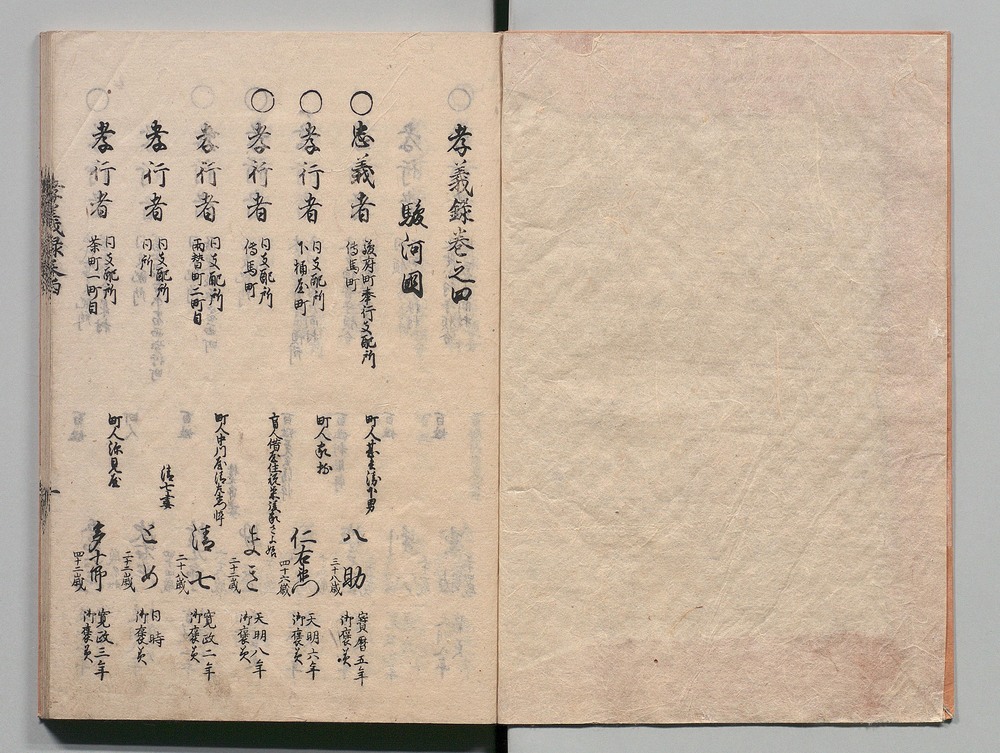 孝義録巻之四
駿河國
○忠義者
駿府町奉行支配所
傳馬町
町人甚右衛門下男
八助
三十八歳
寳暦五年
御褒美
○孝行者
同支配所
下桶屋町
町人
仁右衛門
四十六歳
天明六年
御褒美
○孝行者
同支配所
傳馬町
まき
二十二歳
天明八年
御褒美
孝行者
同支配所
両替町二町目
清七
二十八歳
寛政二年
御褒美
孝行者
同支配所
同所
清七妻
とめ
二十二歳
同時
御褒美
孝行者
同支配所
茶町一町目
町人弥見屋
多十郎
四十二歳
寛政三年
御褒美